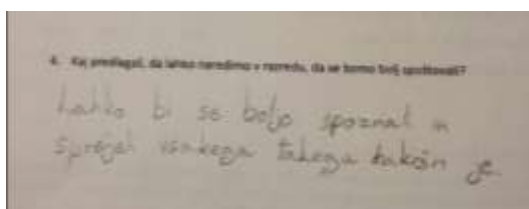 4. Kaj predlagaš, da lahko naredimo v razredu, da se bomo bolj spoštovali?
Lahko bi se boljo spoznal in
sprejeli vsakega takega kakšn je.